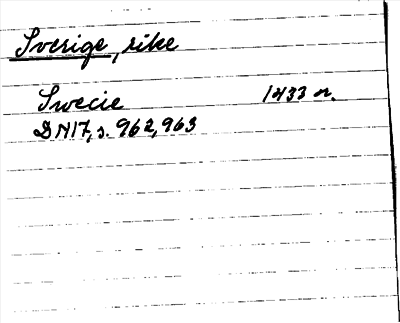 Sverige, rike
Swecie 1433 n.
DN17, s. 962, 963